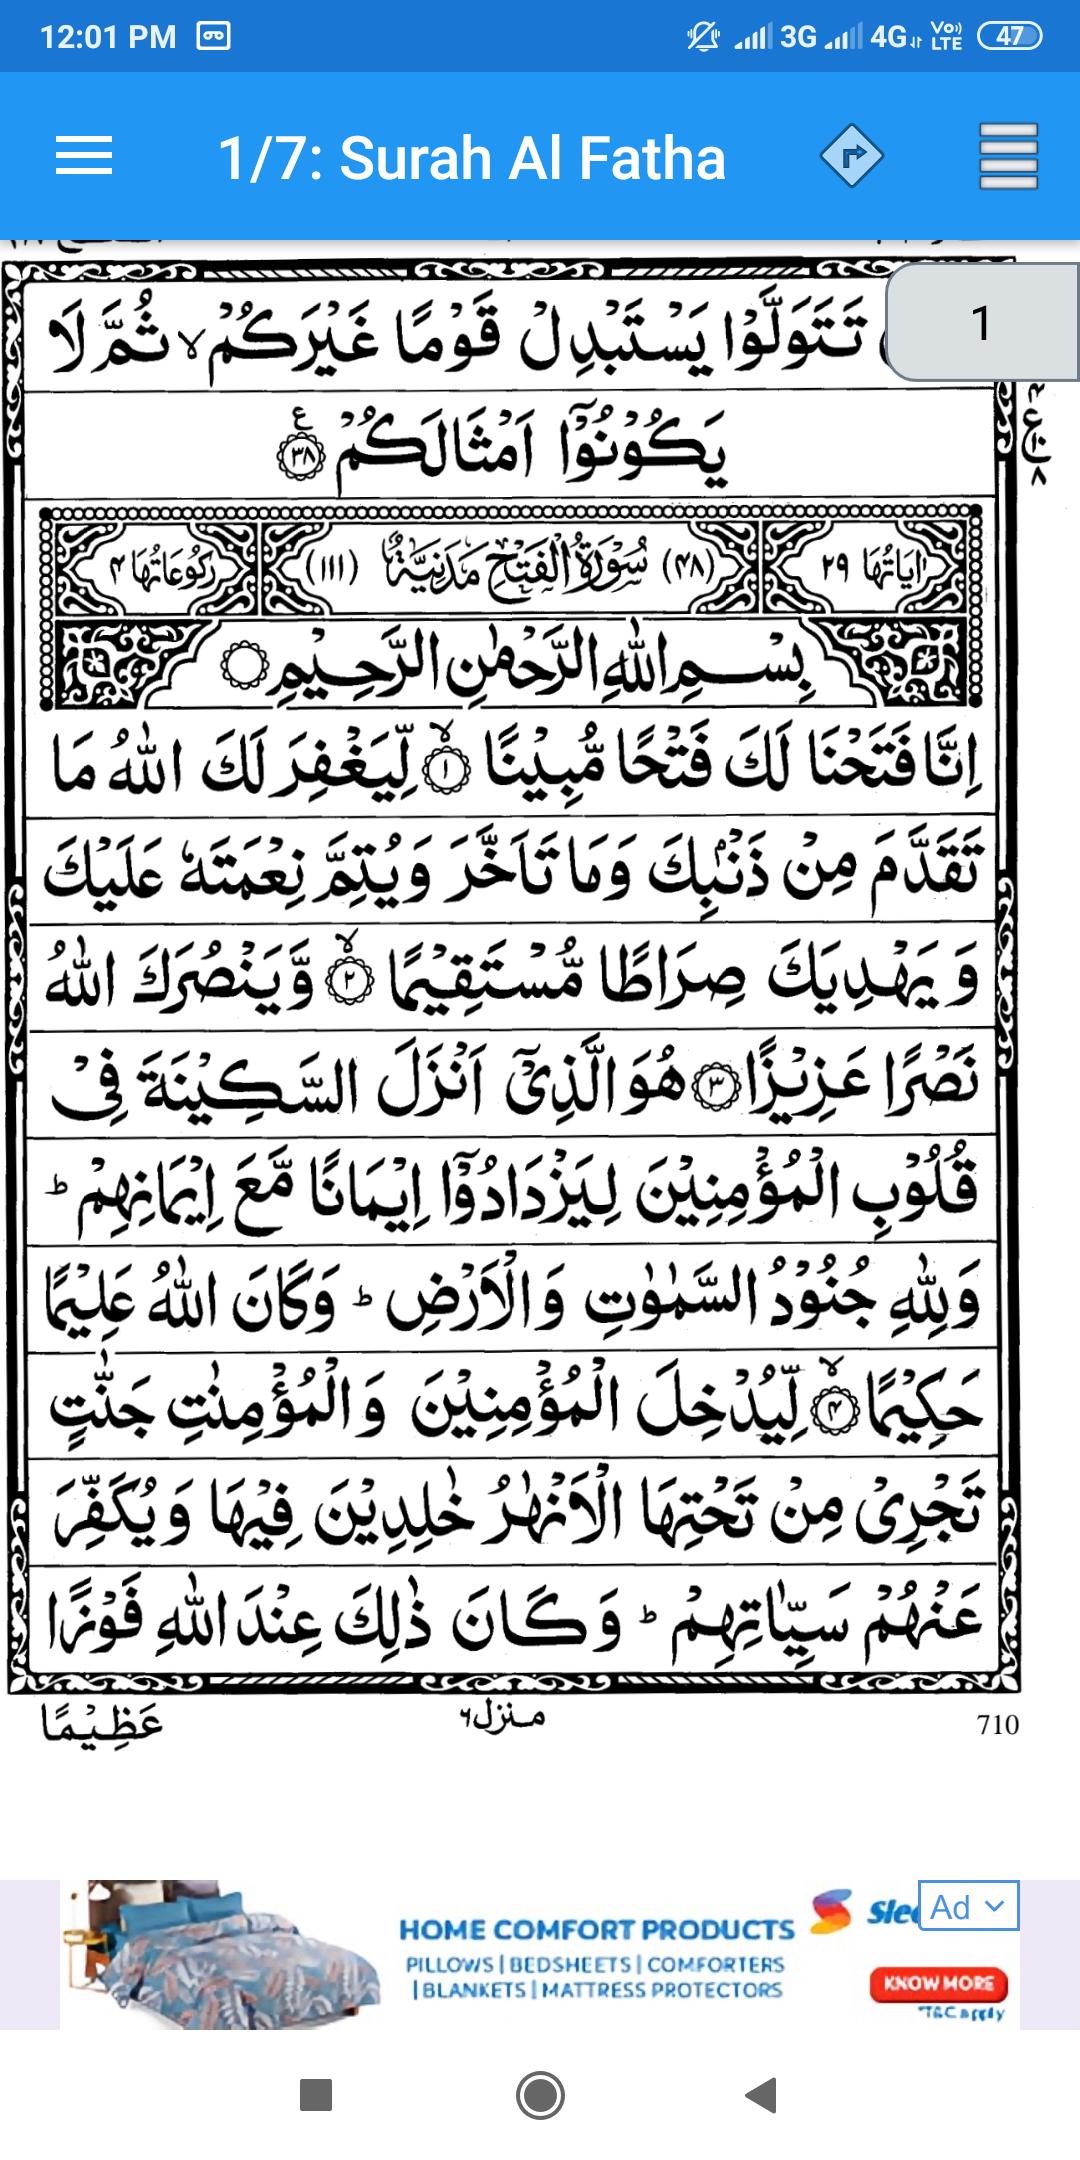 12:01 PM 3G 4G Vo) LTE 47
1/7: Surah Al Fatha
1
تَتَوَلَّوْا يَسْتَبْدِلْ قَوْمًا غَيْرَكُمْ ۙ ثُمَّ لَا
يَكُوْنُوْۤا اَمْثَالَكُمْ ﴿۳۸﴾ ع
اٰیَاتُهَا ۲۹ (۴۸) سُوْرَةُ الْفَتْحِ مَدَنِيَّةٌ (۱۱۱) رُكُوْعَاتُهَا ۴
بِسْمِ اللّٰهِ الرَّحْمٰنِ الرَّحِيْمِ
اِنَّا فَتَحْنَا لَكَ فَتْحًا مُّبِيْنًا ﴿۱﴾ۙ لِّيَغْفِرَ لَكَ اللّٰهُ مَا
تَقَدَّمَ مِنْ ذَنْۢبِكَ وَمَا تَاَخَّرَ وَيُتِمَّ نِعْمَتَهٗ عَلَيْكَ
وَ يَهْدِيَكَ صِرَاطًا مُّسْتَقِيْمًا ﴿۲﴾ۙ وَّيَنْصُرَكَ اللّٰهُ
نَصْرًا عَزِيْزًا ﴿۳﴾ هُوَ الَّذِیْۤ اَنْزَلَ السَّكِيْنَةَ فِیْ
قُلُوْبِ الْمُؤْمِنِيْنَ لِيَزْدَادُوْۤا اِيْمَانًا مَّعَ اِيْمَانِهِمْ ؕ
وَلِلّٰهِ جُنُوْدُ السَّمٰوٰتِ وَالْاَرْضِ ؕ وَكَانَ اللّٰهُ عَلِيْمًا
حَكِيْمًا ﴿۴﴾ۙ لِّيُدْخِلَ الْمُؤْمِنِيْنَ وَالْمُؤْمِنٰتِ جَنّٰتٍ
تَجْرِیْ مِنْ تَحْتِهَا الْاَنْهٰرُ خٰلِدِيْنَ فِيْهَا وَيُكَفِّرَ
عَنْهُمْ سَيِّاٰتِهِمْ ؕ وَكَانَ ذٰلِكَ عِنْدَ اللّٰهِ فَوْزًا
عَظِيْمًا
منزل ۶
710
HOME COMFORT PRODUCTS
PILLOWS | BEDSHEETS | COMFORTERS
| BLANKETS | MATTRESS PROTECTORS
Ad
KNOW MORE
*T&C apply